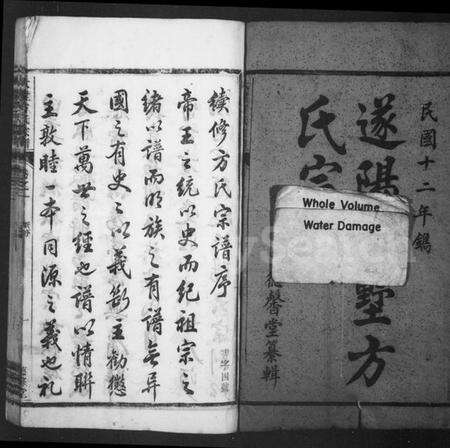 民國十二年鐫
遂陽 墅方
氏宗
馨堂纂輯
Whole Volume
Water Damage
續修方氏宗譜序
帝王之統以史而紀祖宗之
緒以譜而明族之有譜無異
國之有史之以義斷主勸懲
天下萬世之經也譜以情聯
主敦睦一本同源之義也礼